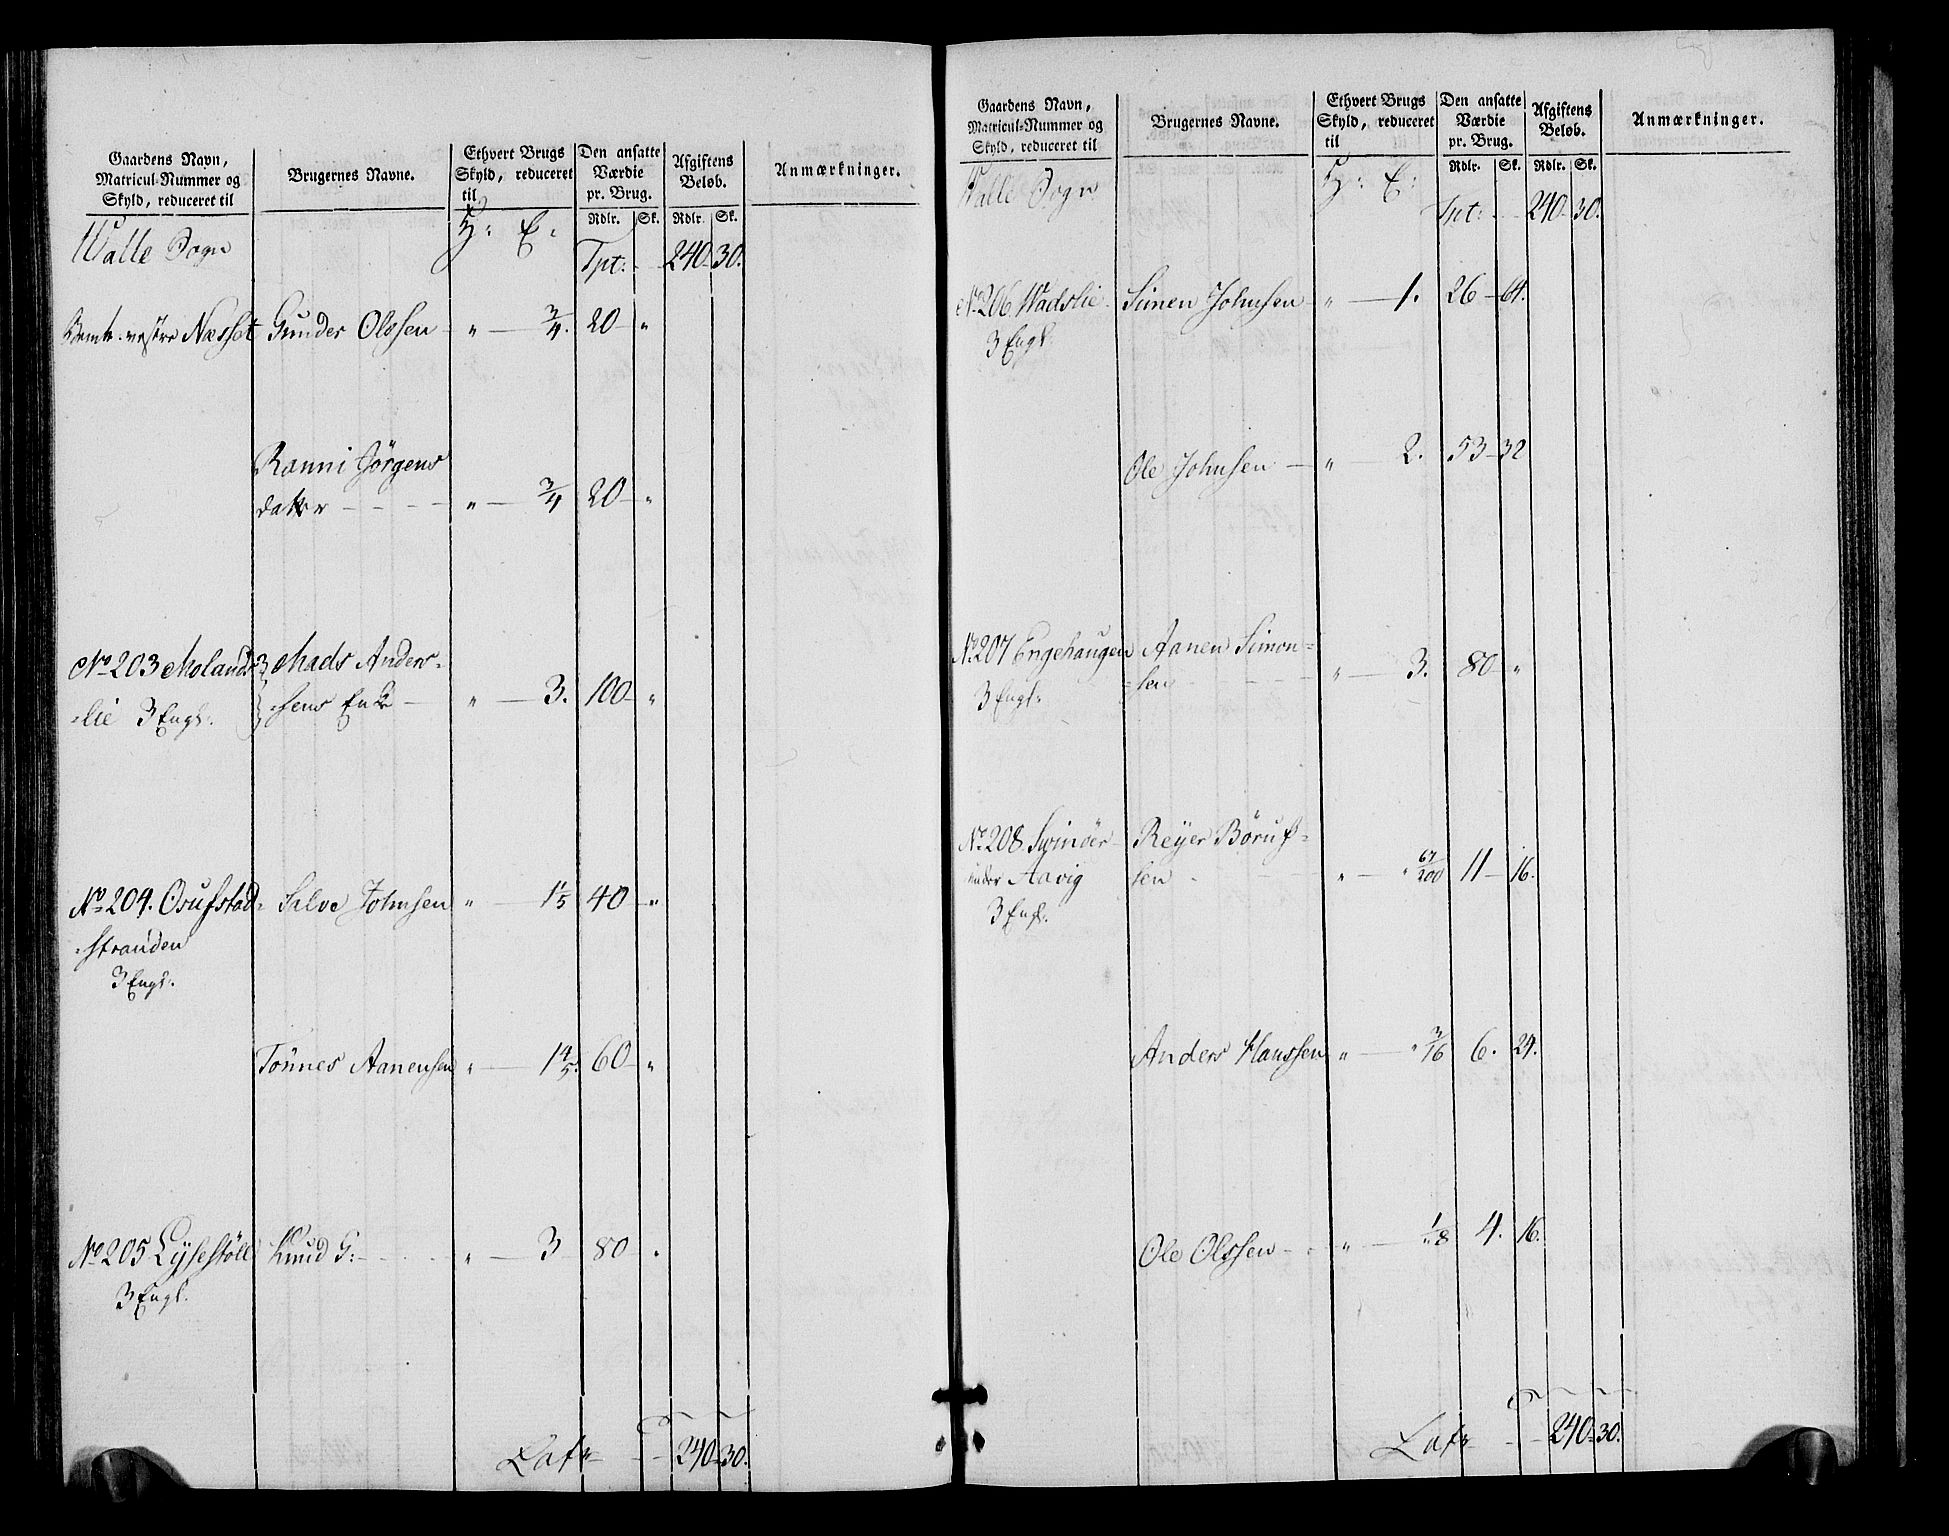 Gaardens Navn,
Matricul-Nummer og
Skyld, reduceret til
Brugernes Navne.
Ethvert Brugs
Skyld, reduceret
til
Den ansatte
Værdie
pr. Brug.
Afgiftens
Beløb.
Anmærkninger.
Rdlr. Sk. Rdlr. Sk.
Walle Sogn H: E: Tpt: 240 30.
vestre Næsset Gunder Olssen " 3/4. 20 "
Ranni Jörgens
datter " 3/4 20 "
No 203 Molands Mads Anders-
-lie 3 Engl. -sens Enke " 3. 100 "
No 204. Osufstad- Salve Johnsen " 1 1/5 40 "
-stranden
3 Engl.
Tönnes Aanensen " 1 4/5. 60 "
No 205 Lysestöll Knud G: " 3 80 "
3 Engl.
Lats 240 30.
Gaardens Navn,
Matricul-Nummer og
Skyld, reduceret til
Brugernes Navne.
Ethvert Brugs
Skyld, reduceret
til
Den ansatte
Værdie
pr. Brug.
Afgiftens
Beløb.
Anmærkninger.
Rdlr. Sk. Rdlr. Sk.
Walle Sogn H: E: Tpt: 240 30.
No 206 Wadslie Simen Johnsen " 1. 26 64.
3 Engl.
Ole Johnsen " 2. 53 32
No 207 Engehaugen Aanen Simon-
3 Engl. -sen " 3. 80 "
No 208 Svinöer Reyer Börufs-
under Aavig sen " " 67/200 11 16.
3 Engl.
Anders Hanssen " " 3/16 6. 24.
Ole Olssen " 1/8 4. 16.
Lats 240 30.